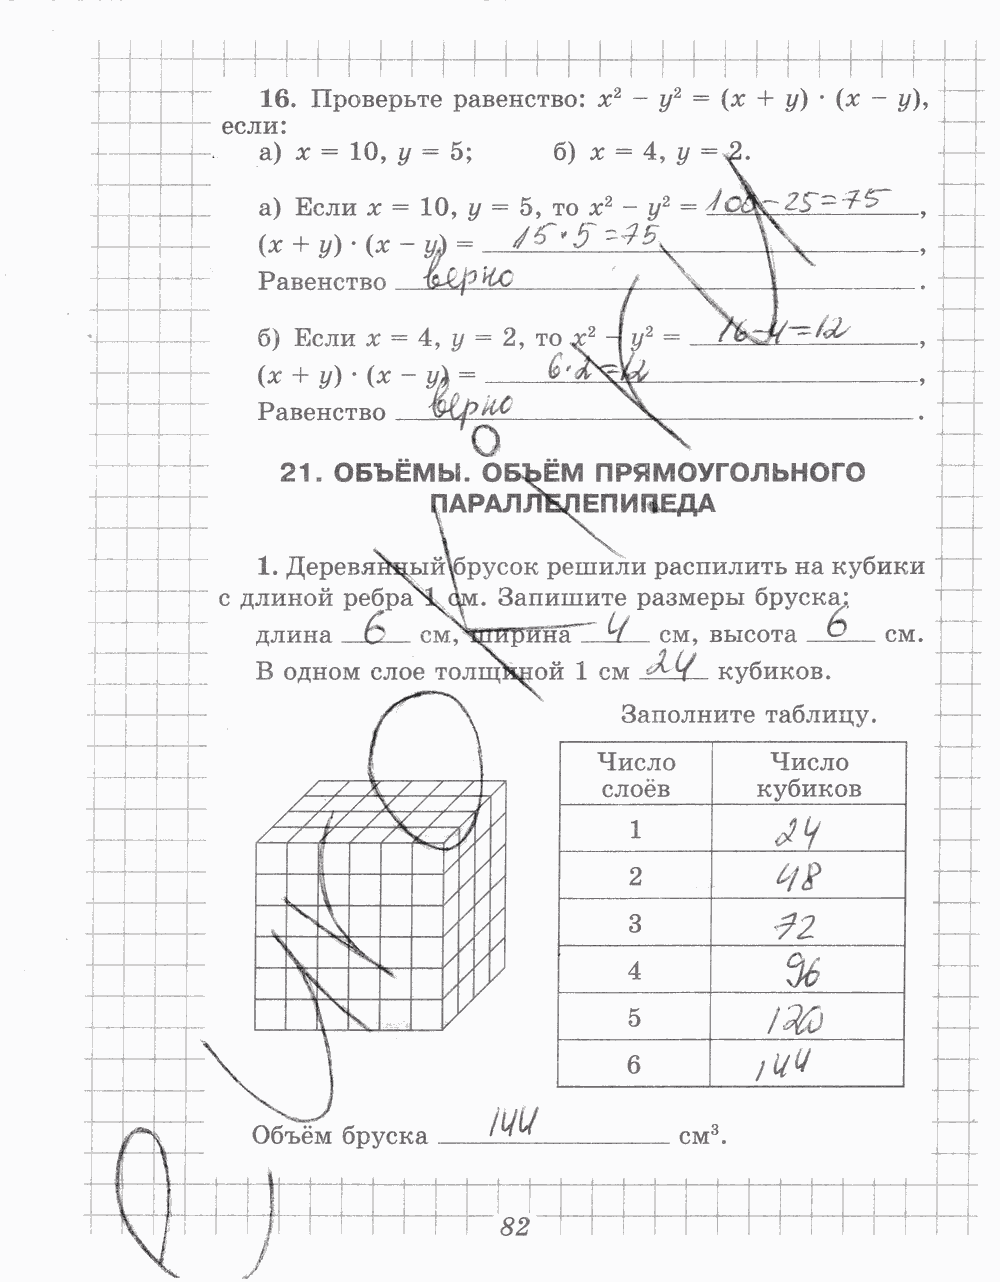 16. Проверьте равенство: x² − y² = (x + y) · (x − y),
если:
а) x = 10, y = 5; б) x = 4, y = 2.
а) Если x = 10, y = 5, то x² − y² = 100 − 25 = 75,
(x + y) · (x − y) = 15 · 5 = 75,
Равенство верно.
б) Если x = 4, y = 2, то x² − y² = 16 − 4 = 12,
(x + y) · (x − y) = 6 · 2 = 12,
Равенство верно.
21. ОБЪЁМЫ. ОБЪЁМ ПРЯМОУГОЛЬНОГО
ПАРАЛЛЕЛЕПИПЕДА
1. Деревянный брусок решили распилить на кубики
с длиной ребра 1 см. Запишите размеры бруска:
длина 6 см, ширина 4 см, высота 6 см.
В одном слое толщиной 1 см 24 кубиков.
Заполните таблицу.
Число слоёв Число кубиков
1 24
2 48
3 72
4 96
5 120
6 144
Объём бруска 144 см³.
82